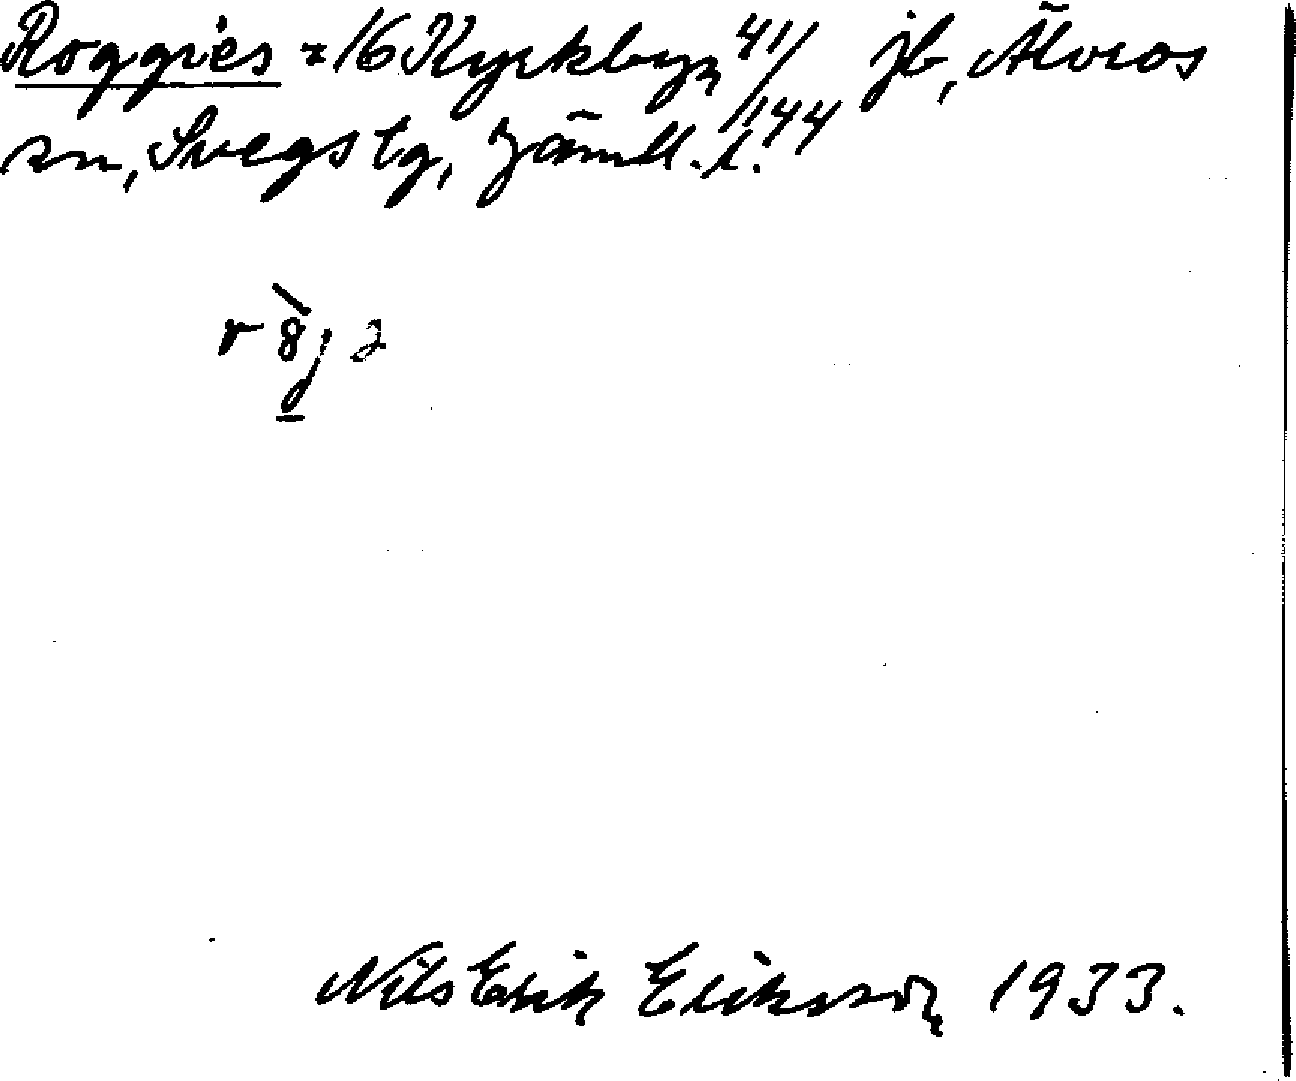 Roggies = 16 Kyrkbyn 41/144 jb, Älvros
sn, Svegs tg, Jämtl. l.
Nils Erik Eriksson 1933.